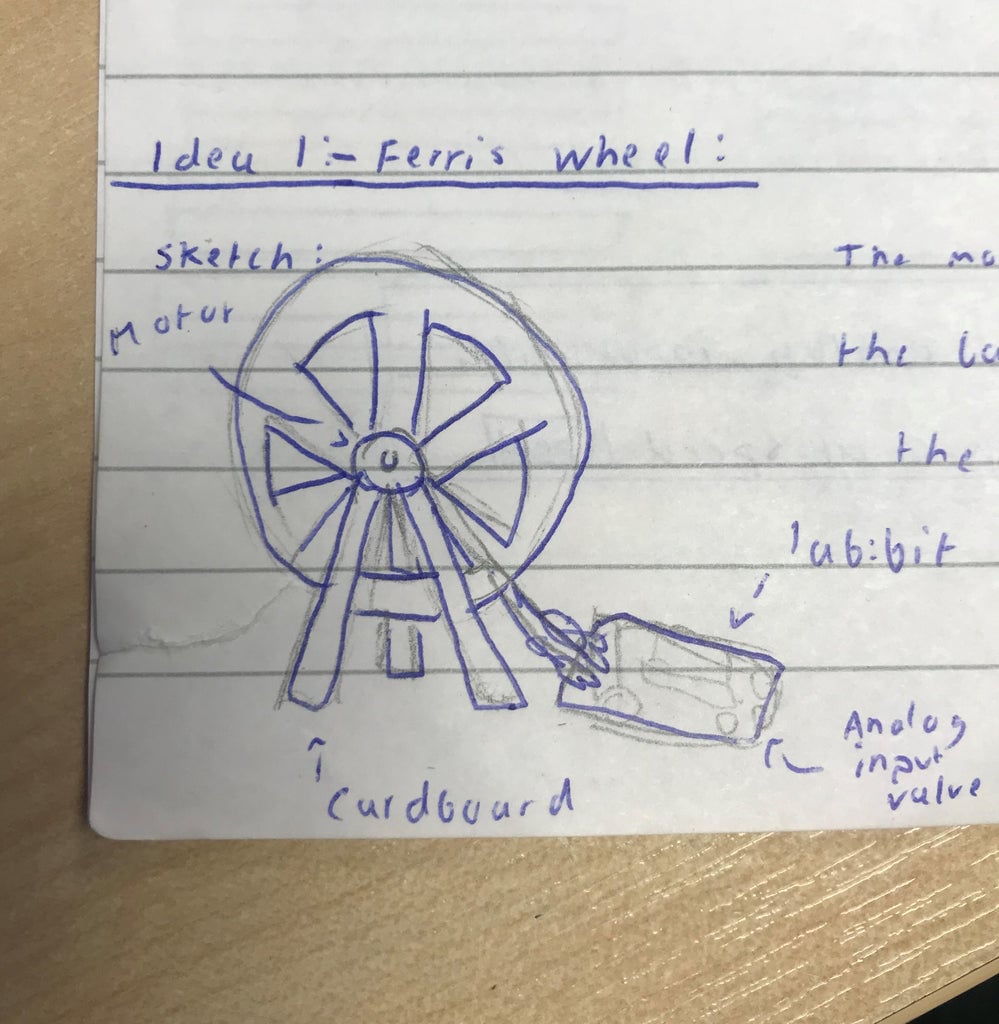 Idea 1:- Ferris wheel:
Sketch:
Motor
The
the
the
lab:bit
Analog
input
value
Cardboard